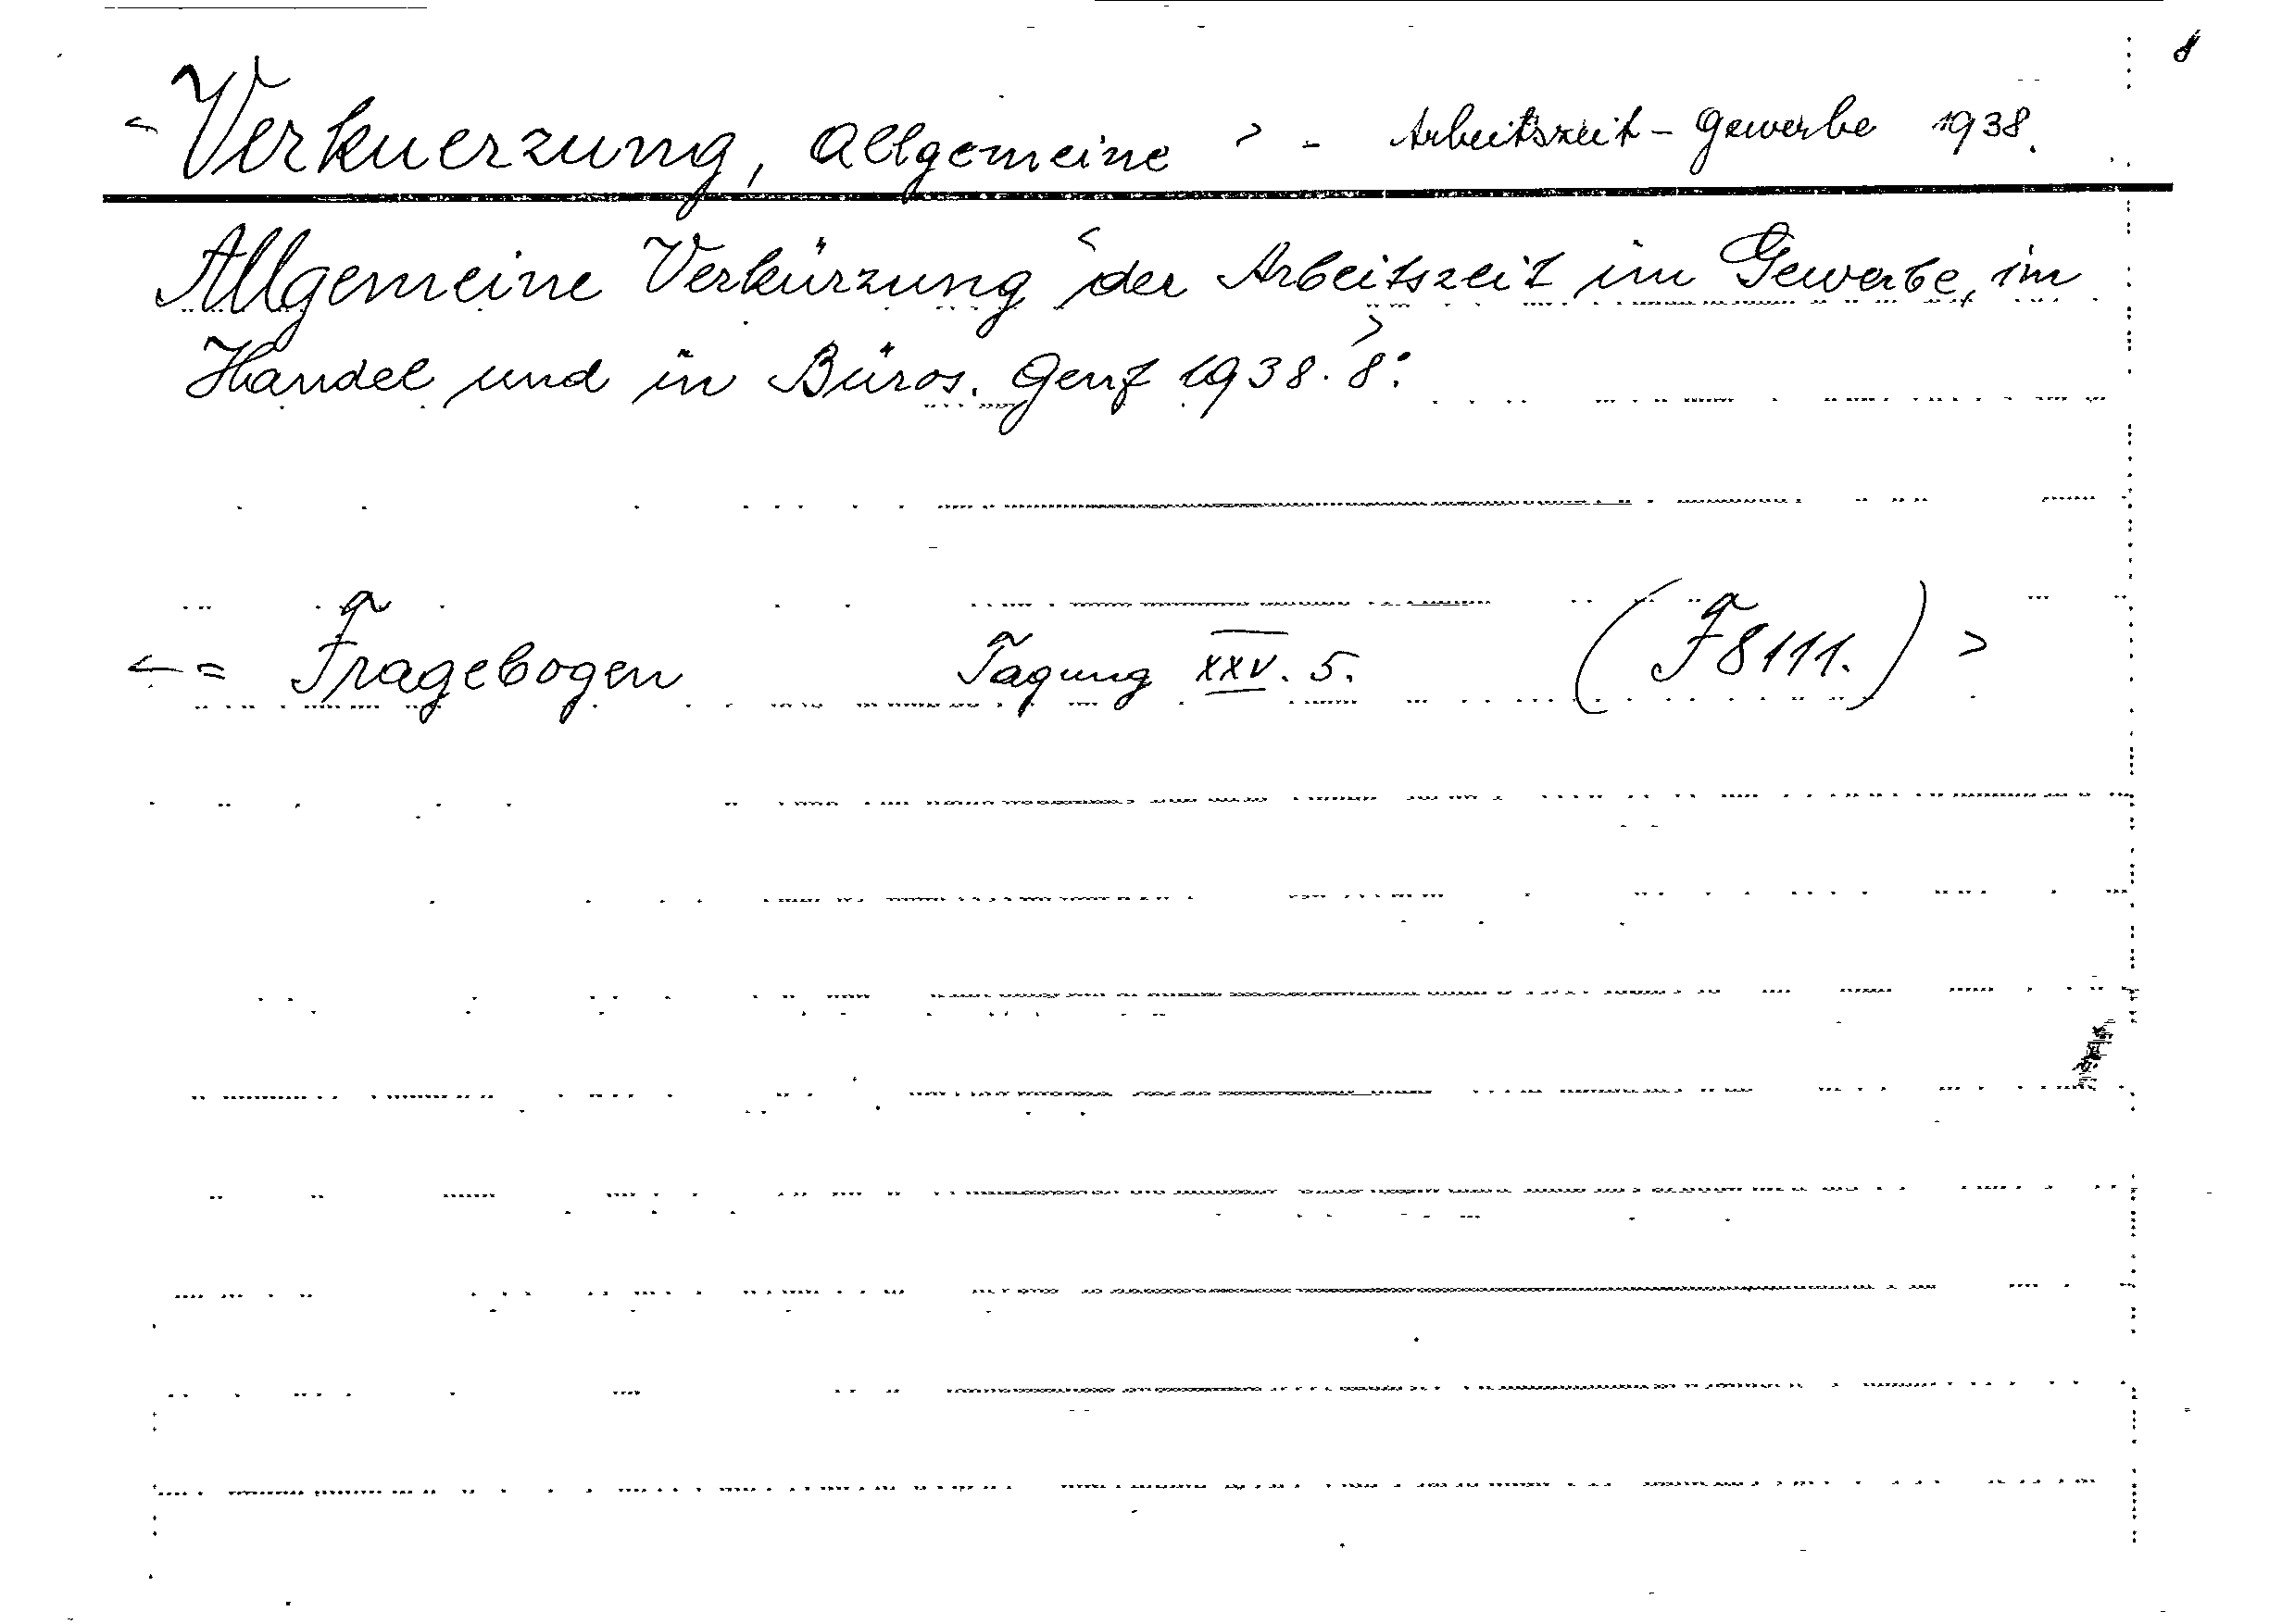 < Verkuerzung, Allgemeine > - Arbeitszeit - Gewerbe 1938.
Allgemeine Verkürzung < der Arbeitszeit im Gewerbe, im
Handel und in Büros. > Genf 1938. 8°.
< = Fragebogen Tagung XXV. 5. (F 8111.) >